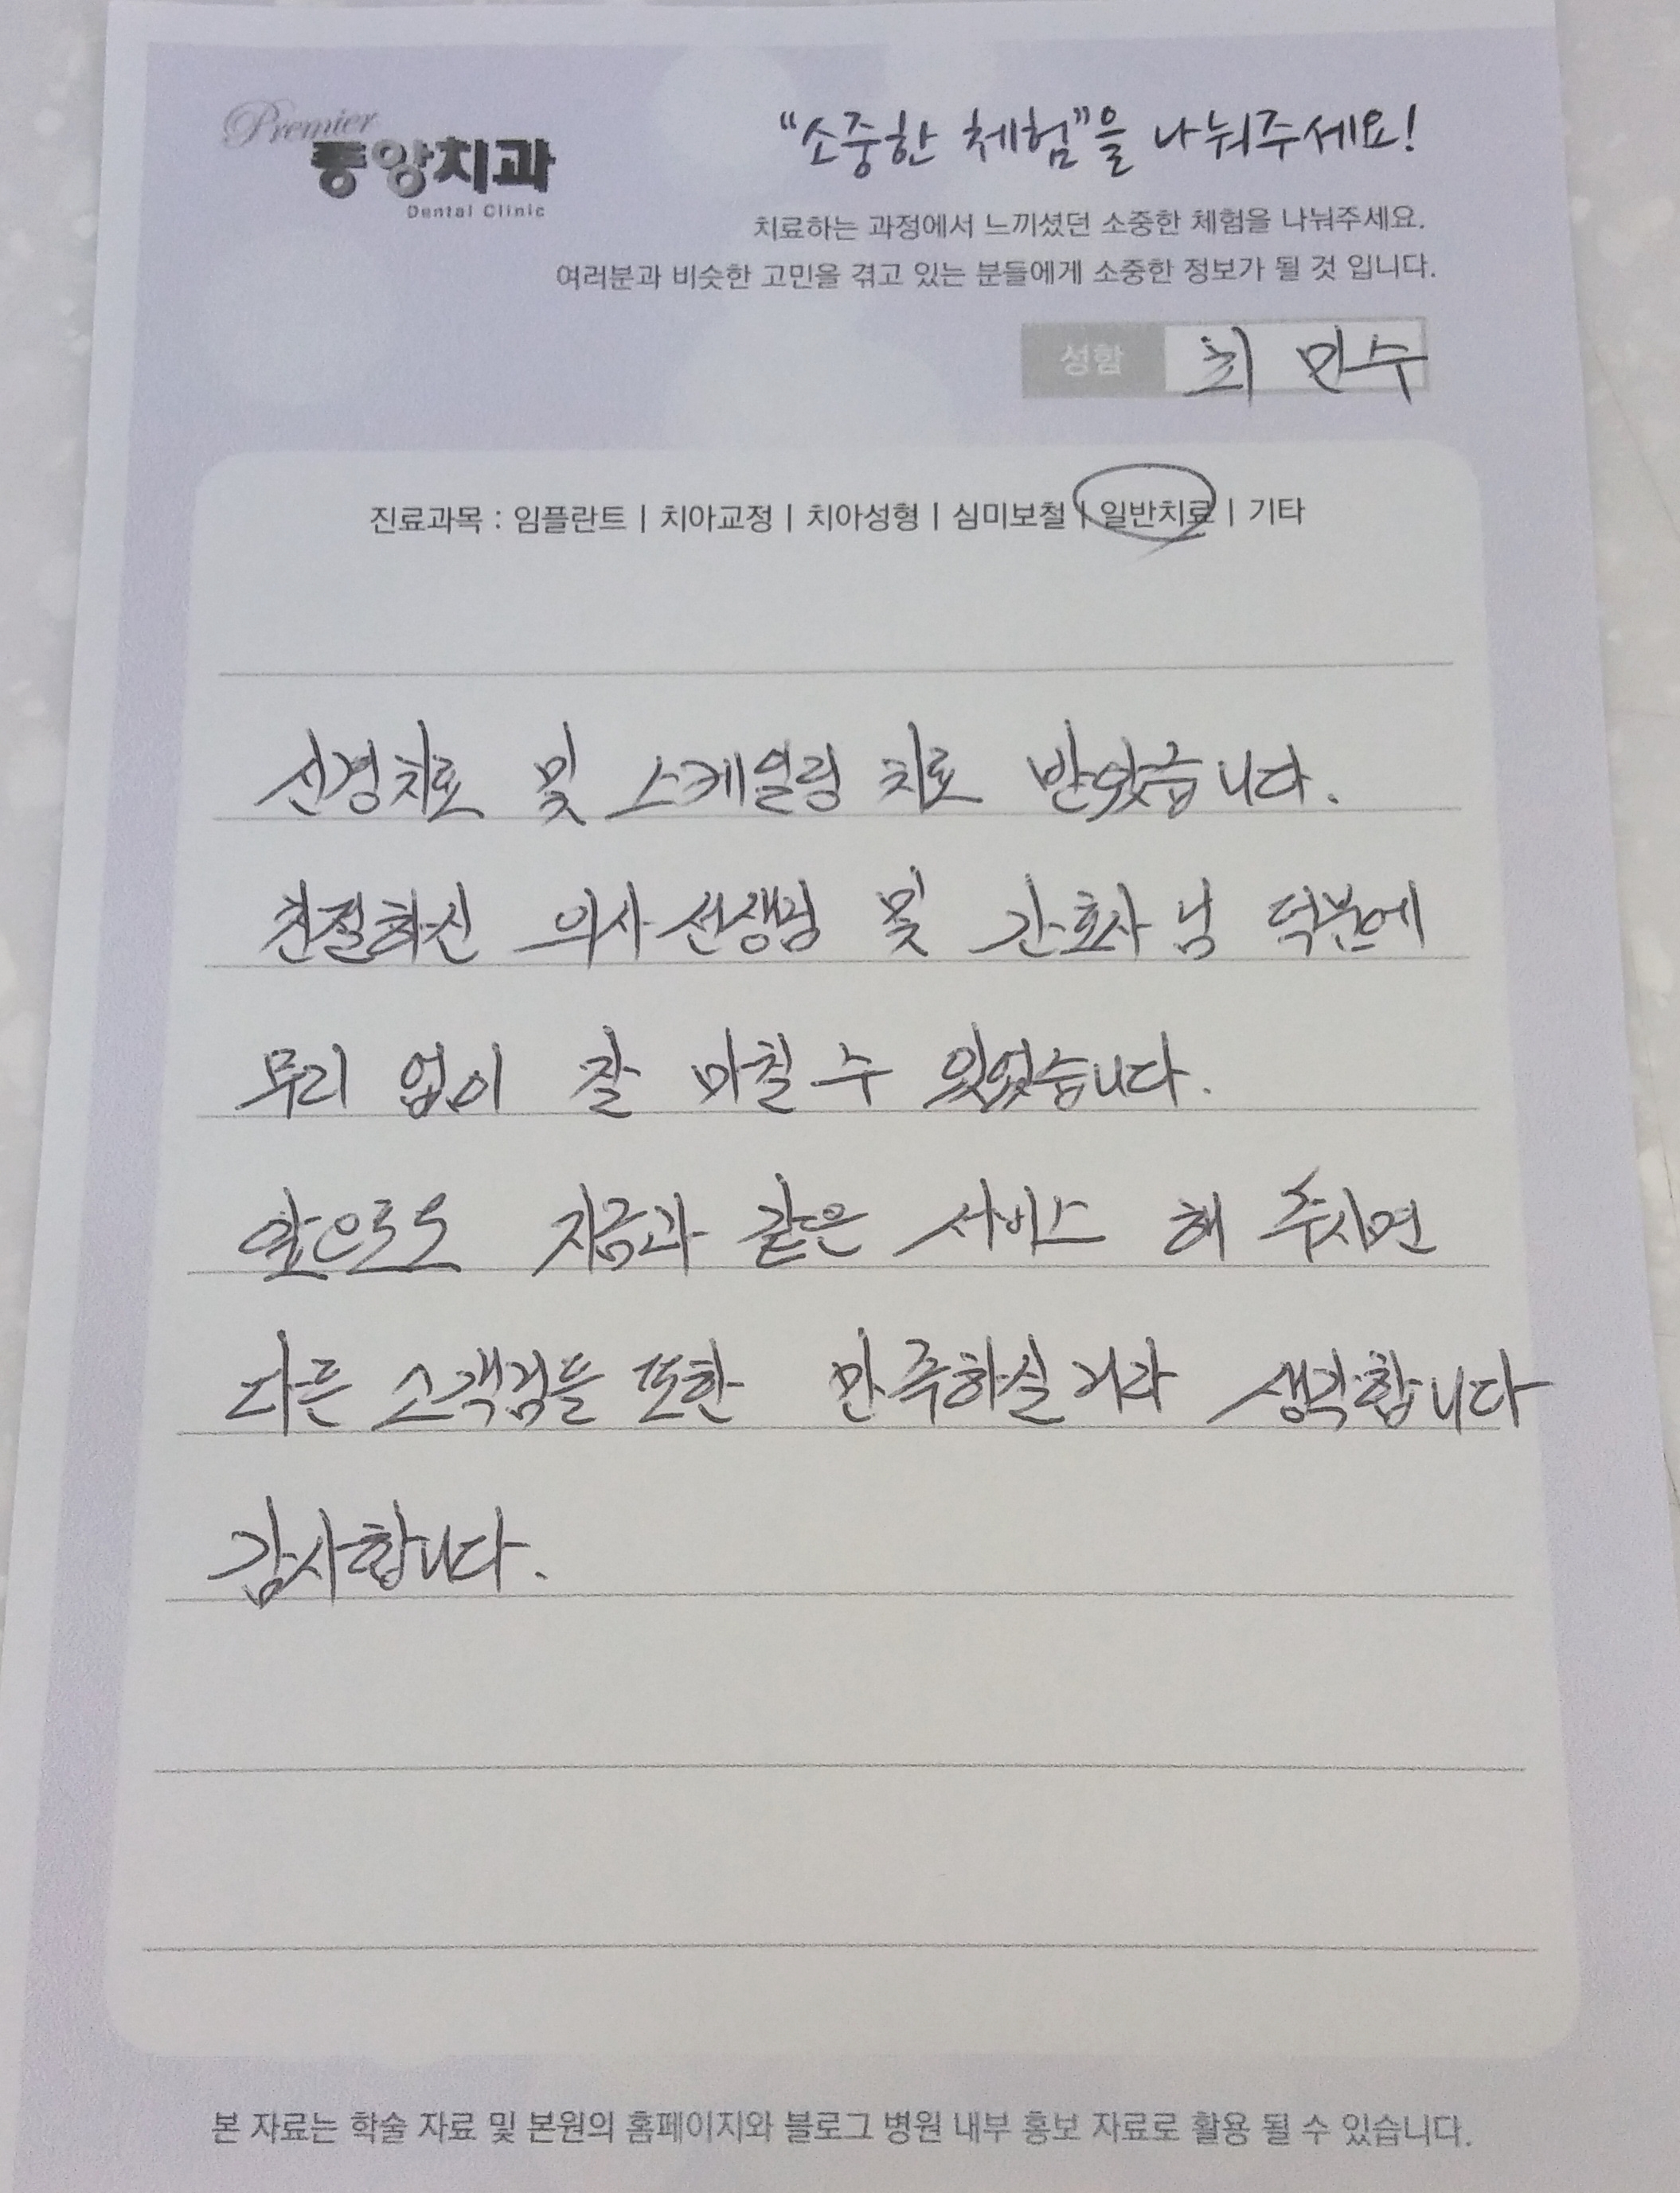 Premier
중앙치과
Dental Clinic
"소중한 체험"을 나눠주세요!
치료하는 과정에서 느끼셨던 소중한 체험을 나눠주세요.
여러분과 비슷한 고민을 겪고 있는 분들에게 소중한 정보가 될 것 입니다.
성함 최 민수
진료과목 : 임플란트 | 치아교정 | 치아성형 | 심미보철 | 일반치료 | 기타
신경치료 및 스케일링 치료 받았습니다.
친절하신 의사선생님 및 간호사님 덕분에
무리 없이 잘 마칠 수 있었습니다.
앞으로도 지금과 같은 서비스 해 주시면
다른 고객님들 또한 만족하실거라 생각합니다
감사합니다.
본 자료는 학술 자료 및 본원의 홈페이지와 블로그 병원 내부 홍보 자료로 활용 될 수 있습니다.